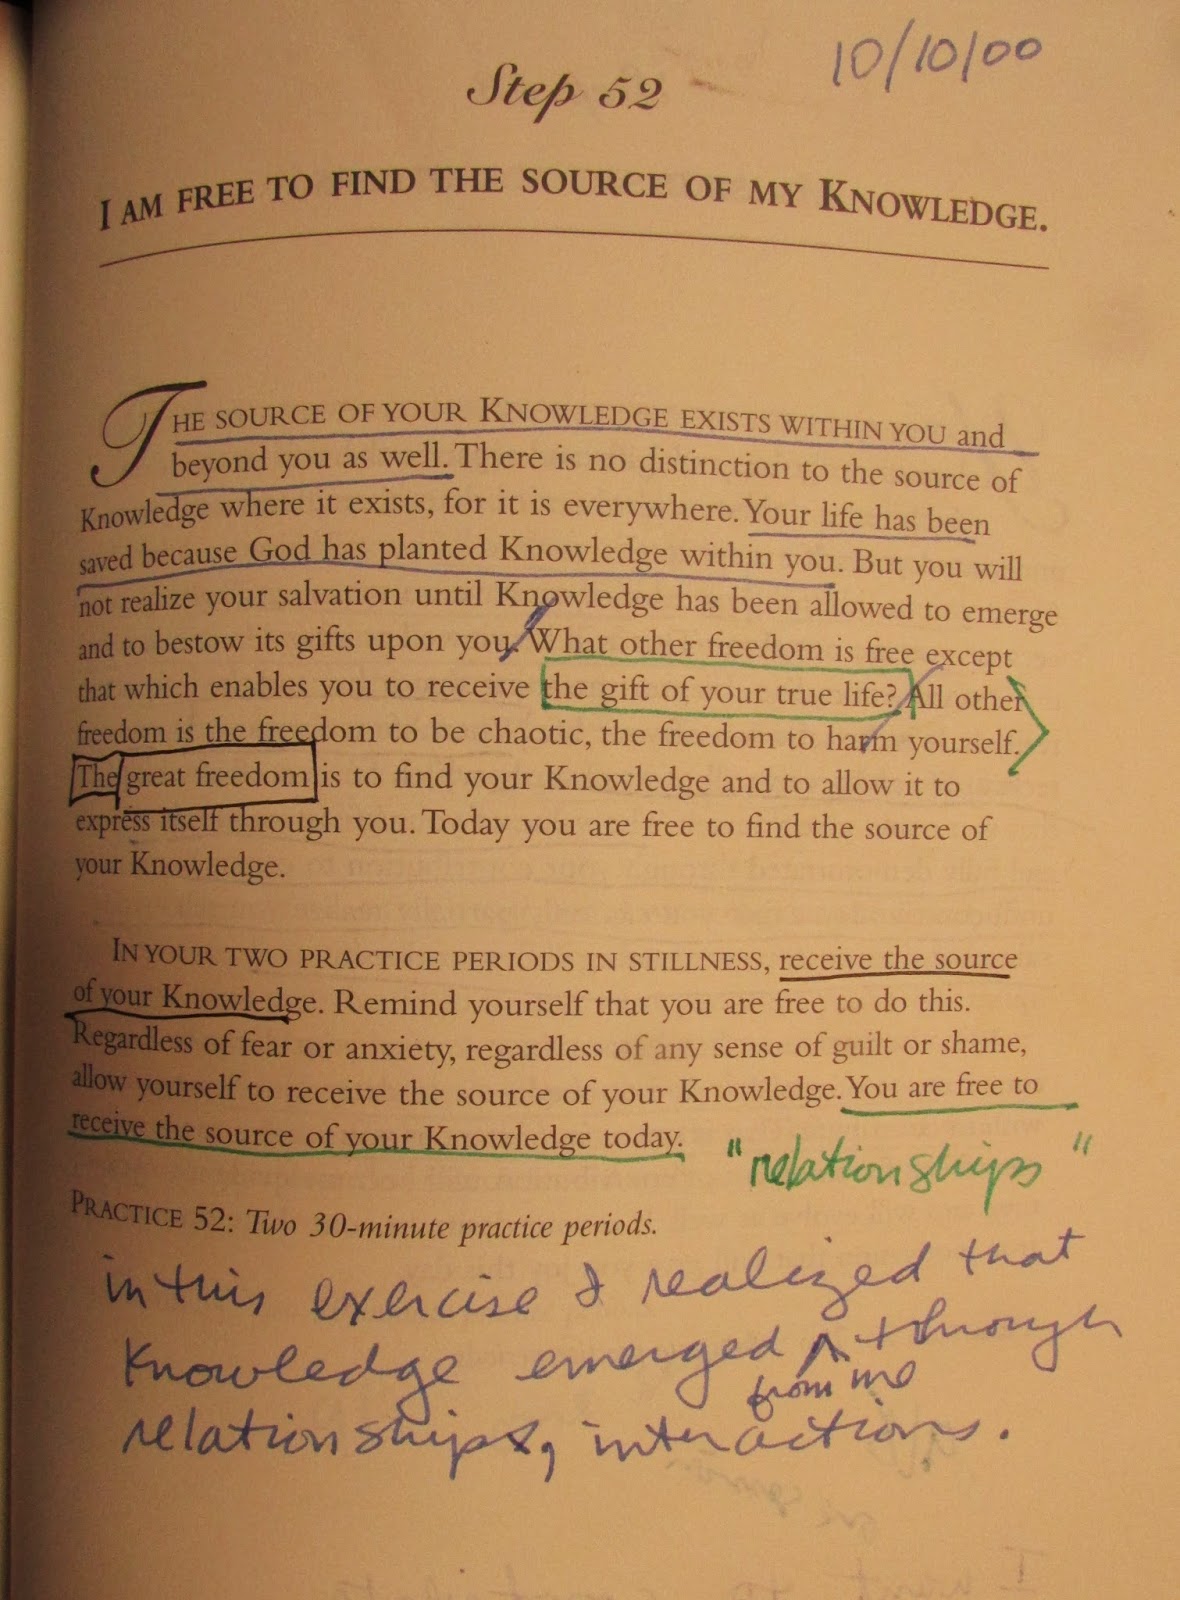 10/10/00
Step 52
I AM FREE TO FIND THE SOURCE OF MY KNOWLEDGE.
THE SOURCE OF YOUR KNOWLEDGE EXISTS WITHIN YOU and
beyond you as well. There is no distinction to the source of
Knowledge where it exists, for it is everywhere. Your life has been
saved because God has planted Knowledge within you. But you will
not realize your salvation until Knowledge has been allowed to emerge
and to bestow its gifts upon you. What other freedom is free except
that which enables you to receive the gift of your true life? All other
freedom is the freedom to be chaotic, the freedom to harm yourself.
The great freedom is to find your Knowledge and to allow it to
express itself through you. Today you are free to find the source of
your Knowledge.
IN YOUR TWO PRACTICE PERIODS IN STILLNESS, receive the source
of your Knowledge. Remind yourself that you are free to do this.
Regardless of fear or anxiety, regardless of any sense of guilt or shame,
allow yourself to receive the source of your Knowledge. You are free to
receive the source of your Knowledge today.
"relationships"
PRACTICE 52: Two 30-minute practice periods.
in this exercise I realized that
Knowledge emerged through
from me
relationships, interactions.